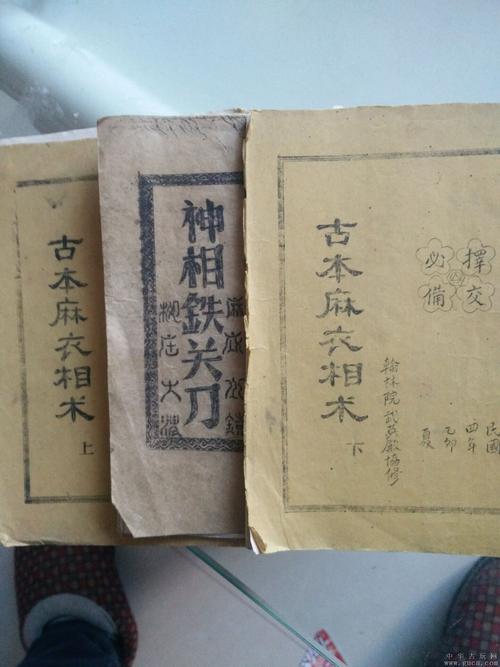 古本麻衣相术
上
神相鉄关刀
古本麻衣相术
下
擇交
必備
民國
四年
乙卯
夏
翰林院武英殿協修
中华古玩网
www.gucn.com